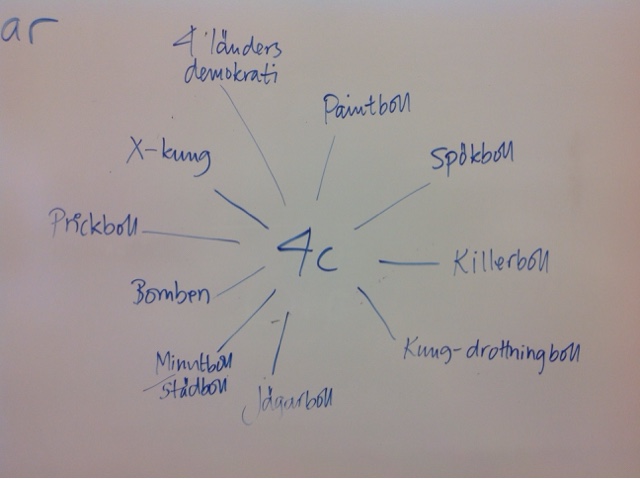 ar
4 länders
demokrati
Paintboll
X-kung
Spökboll
Prickboll
4c
Killerboll
Bomben
Kung-drottningboll
Minutboll
Städboll
Jägarboll